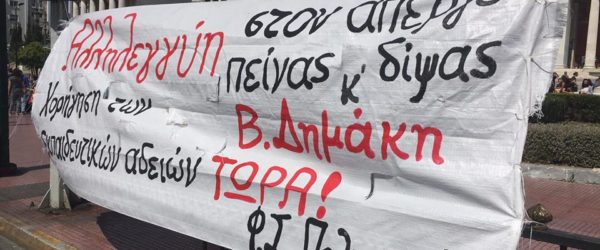 Αλληλεγγύη στον απεργό
πείνας κ' δίψας
Β. Δημάκη
Χορήγηση των
εκπαιδευτικών αδειών ΤΩΡΑ!